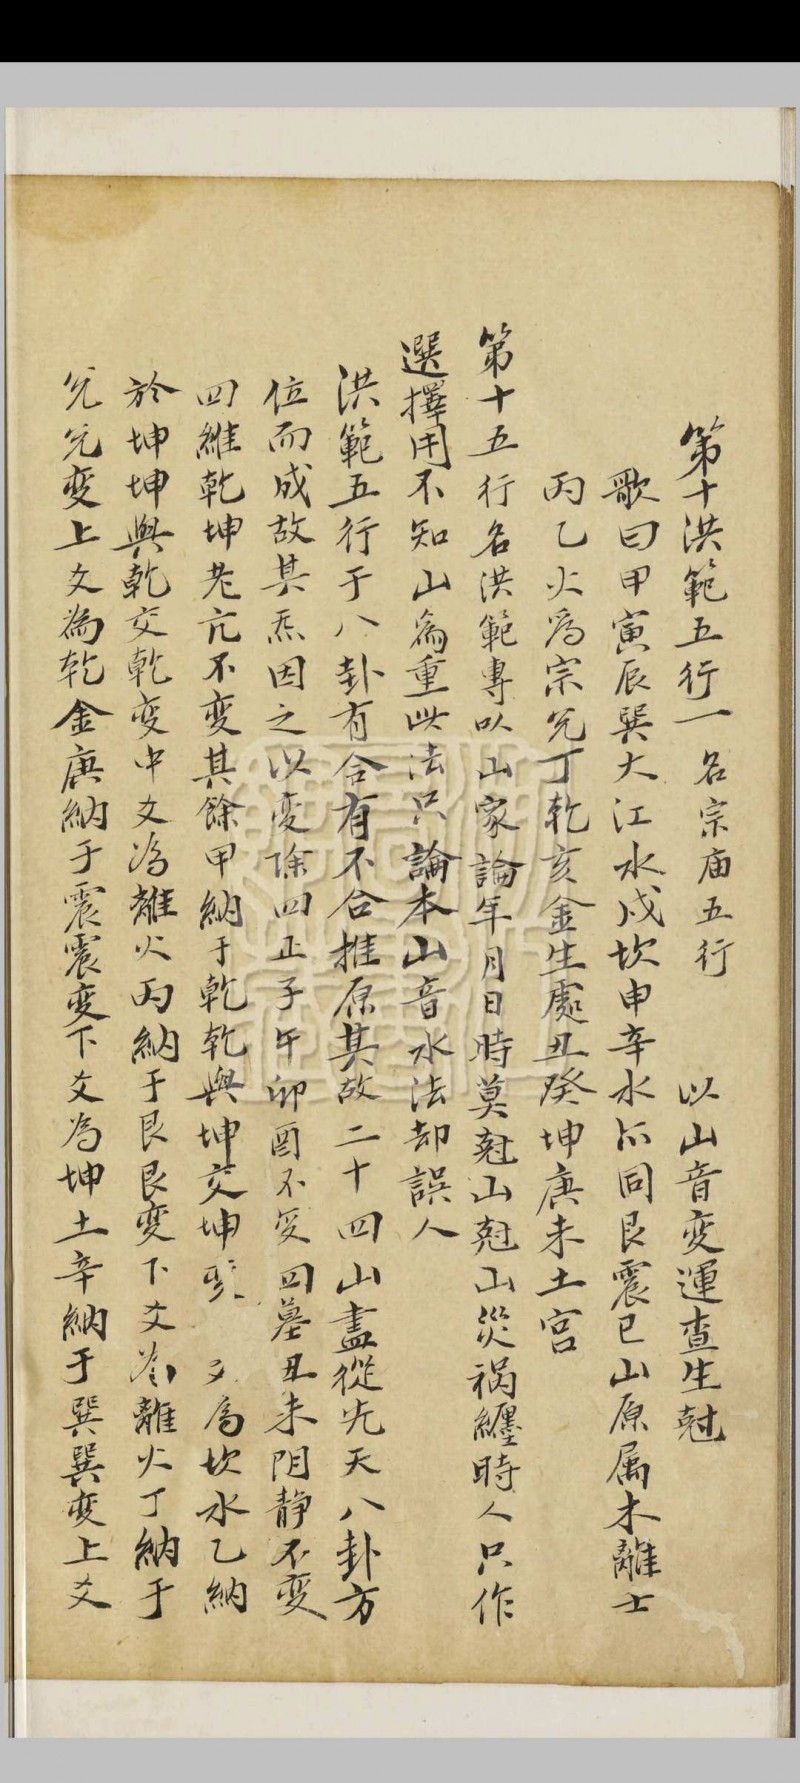 第十洪範五行一名宗庙五行 以山音变運查生尅
歌曰甲寅辰巽大江水戌坎申辛水亦同艮震巳山原属木離壬
丙乙火為宗兌丁乾亥金生處丑癸坤庚未土宫
第十五行名洪範專以山家論年月日時莫尅山尅山災禍纏時人只作
選擇用不知山為重此法只論本山音水法却誤人
洪範五行于八卦有合有不合推原其故二十四山盡從先天八卦方
位而成故其炁因之以变除四正子午卯酉不变四墓丑未阴静不变
四維乾坤老亢不变其餘甲納于乾乾與坤交坤变 爻為坎水乙納
於坤坤與乾交乾变中爻為離火丙納于艮艮变下爻為離火丁納于
兌兌变上爻為乾金庚納于震震变下爻為坤土辛納于巽巽变上爻